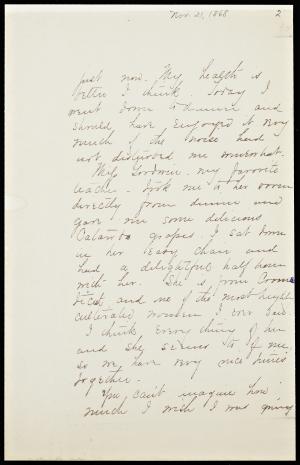 Nov. 21, 1868
2
just now. My health is
better I think. Today I
went down to dinner and
should have enjoyed it very
much if the noise had
not disturbed me somewhat.
Miss Goodwin, my favorite
teacher. Took me to her room
directly from dinner and
gave me some delicious
Catawba grapes. I sat down
in her easy chair and
had a delightful half hour
with her. She is from Conne
ticut and one of the most highly
cultivated women I ever saw.
I think everything of her
and she seems to of me,
so we have very nice times
together.
You can't imagine how
much I wish I was going